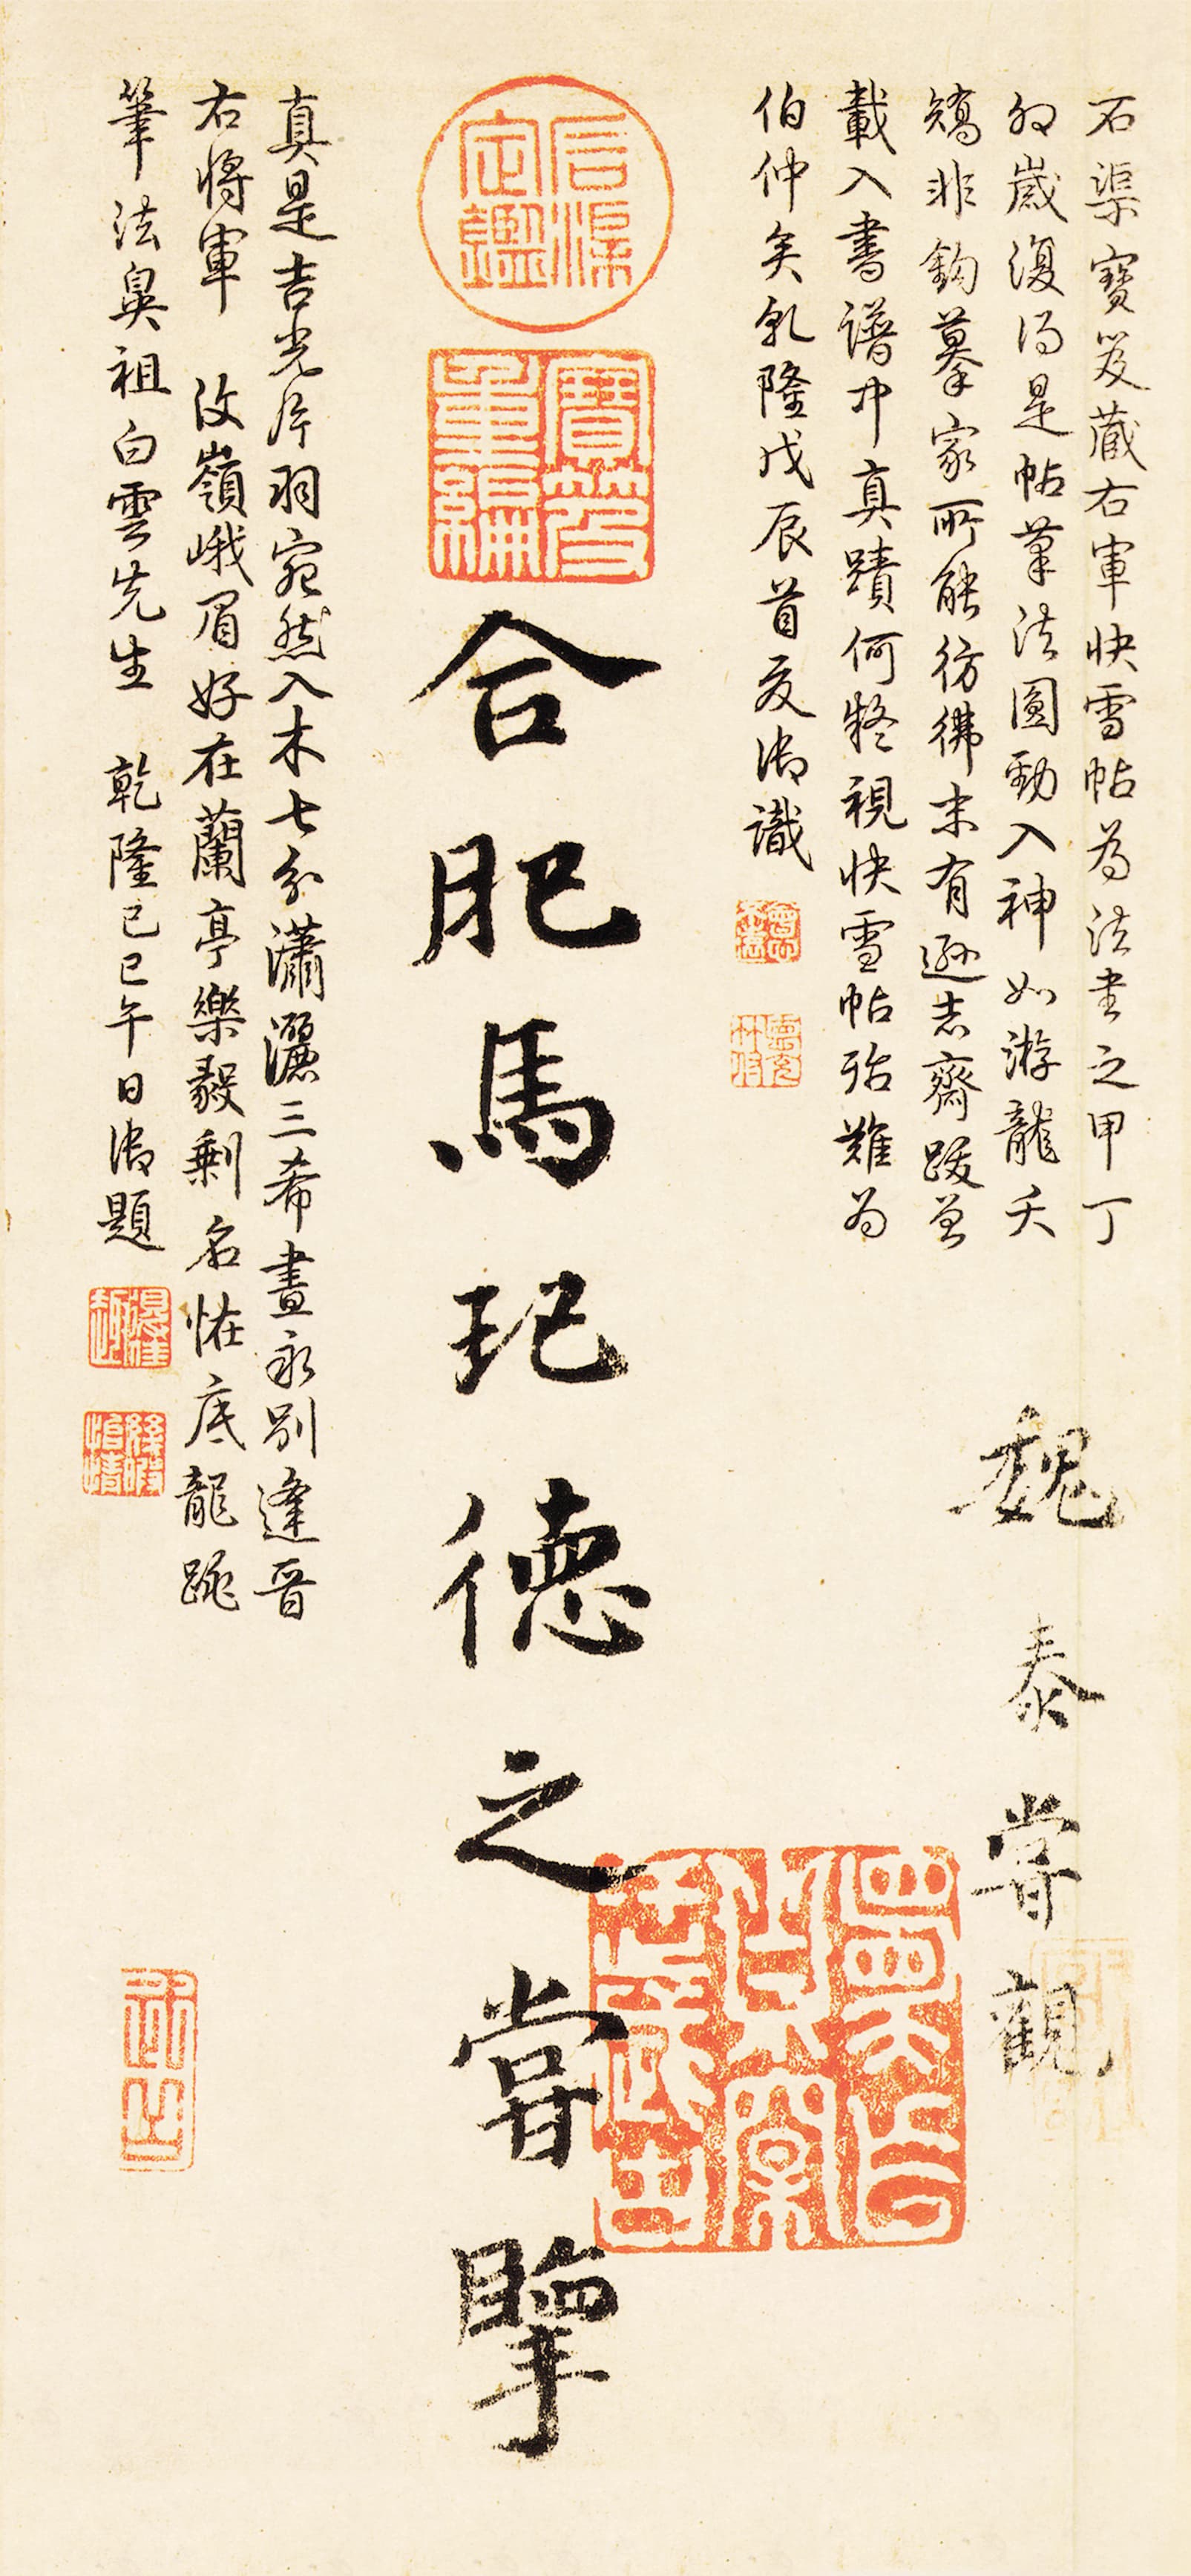 石渠寶笈藏右軍快雪帖為法書之甲丁
卯歲復得是帖筆法圓勁入神如游龍夭
矯非鈎摹家所能彷彿末有遜志齋跋曾
載入書譜中真蹟何疑視快雪帖殆難為
伯仲矣乾隆戊辰首夏御識
魏泰嘗觀
石渠定鑑
寶笈重編
合肥馬玘德之嘗
真是吉光片羽宛然入木七分瀟灑三希晝永別逢晉
右將軍 汶嶺峨眉好在蘭亭樂毅剩名恠底龍跳
筆法鼻祖白雲先生 乾隆己巳午日御題